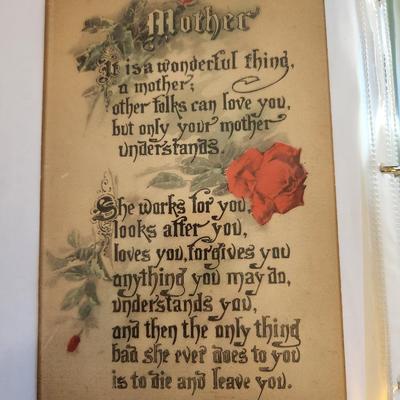 Mother
It is a wonderful thing,
a mother;
other folks can love you,
but only your mother
understands.
She works for you,
looks after you,
loves you, forgives you
anything you may do,
understands you,
and then the only thing
bad she ever does to you
is to die and leave you.